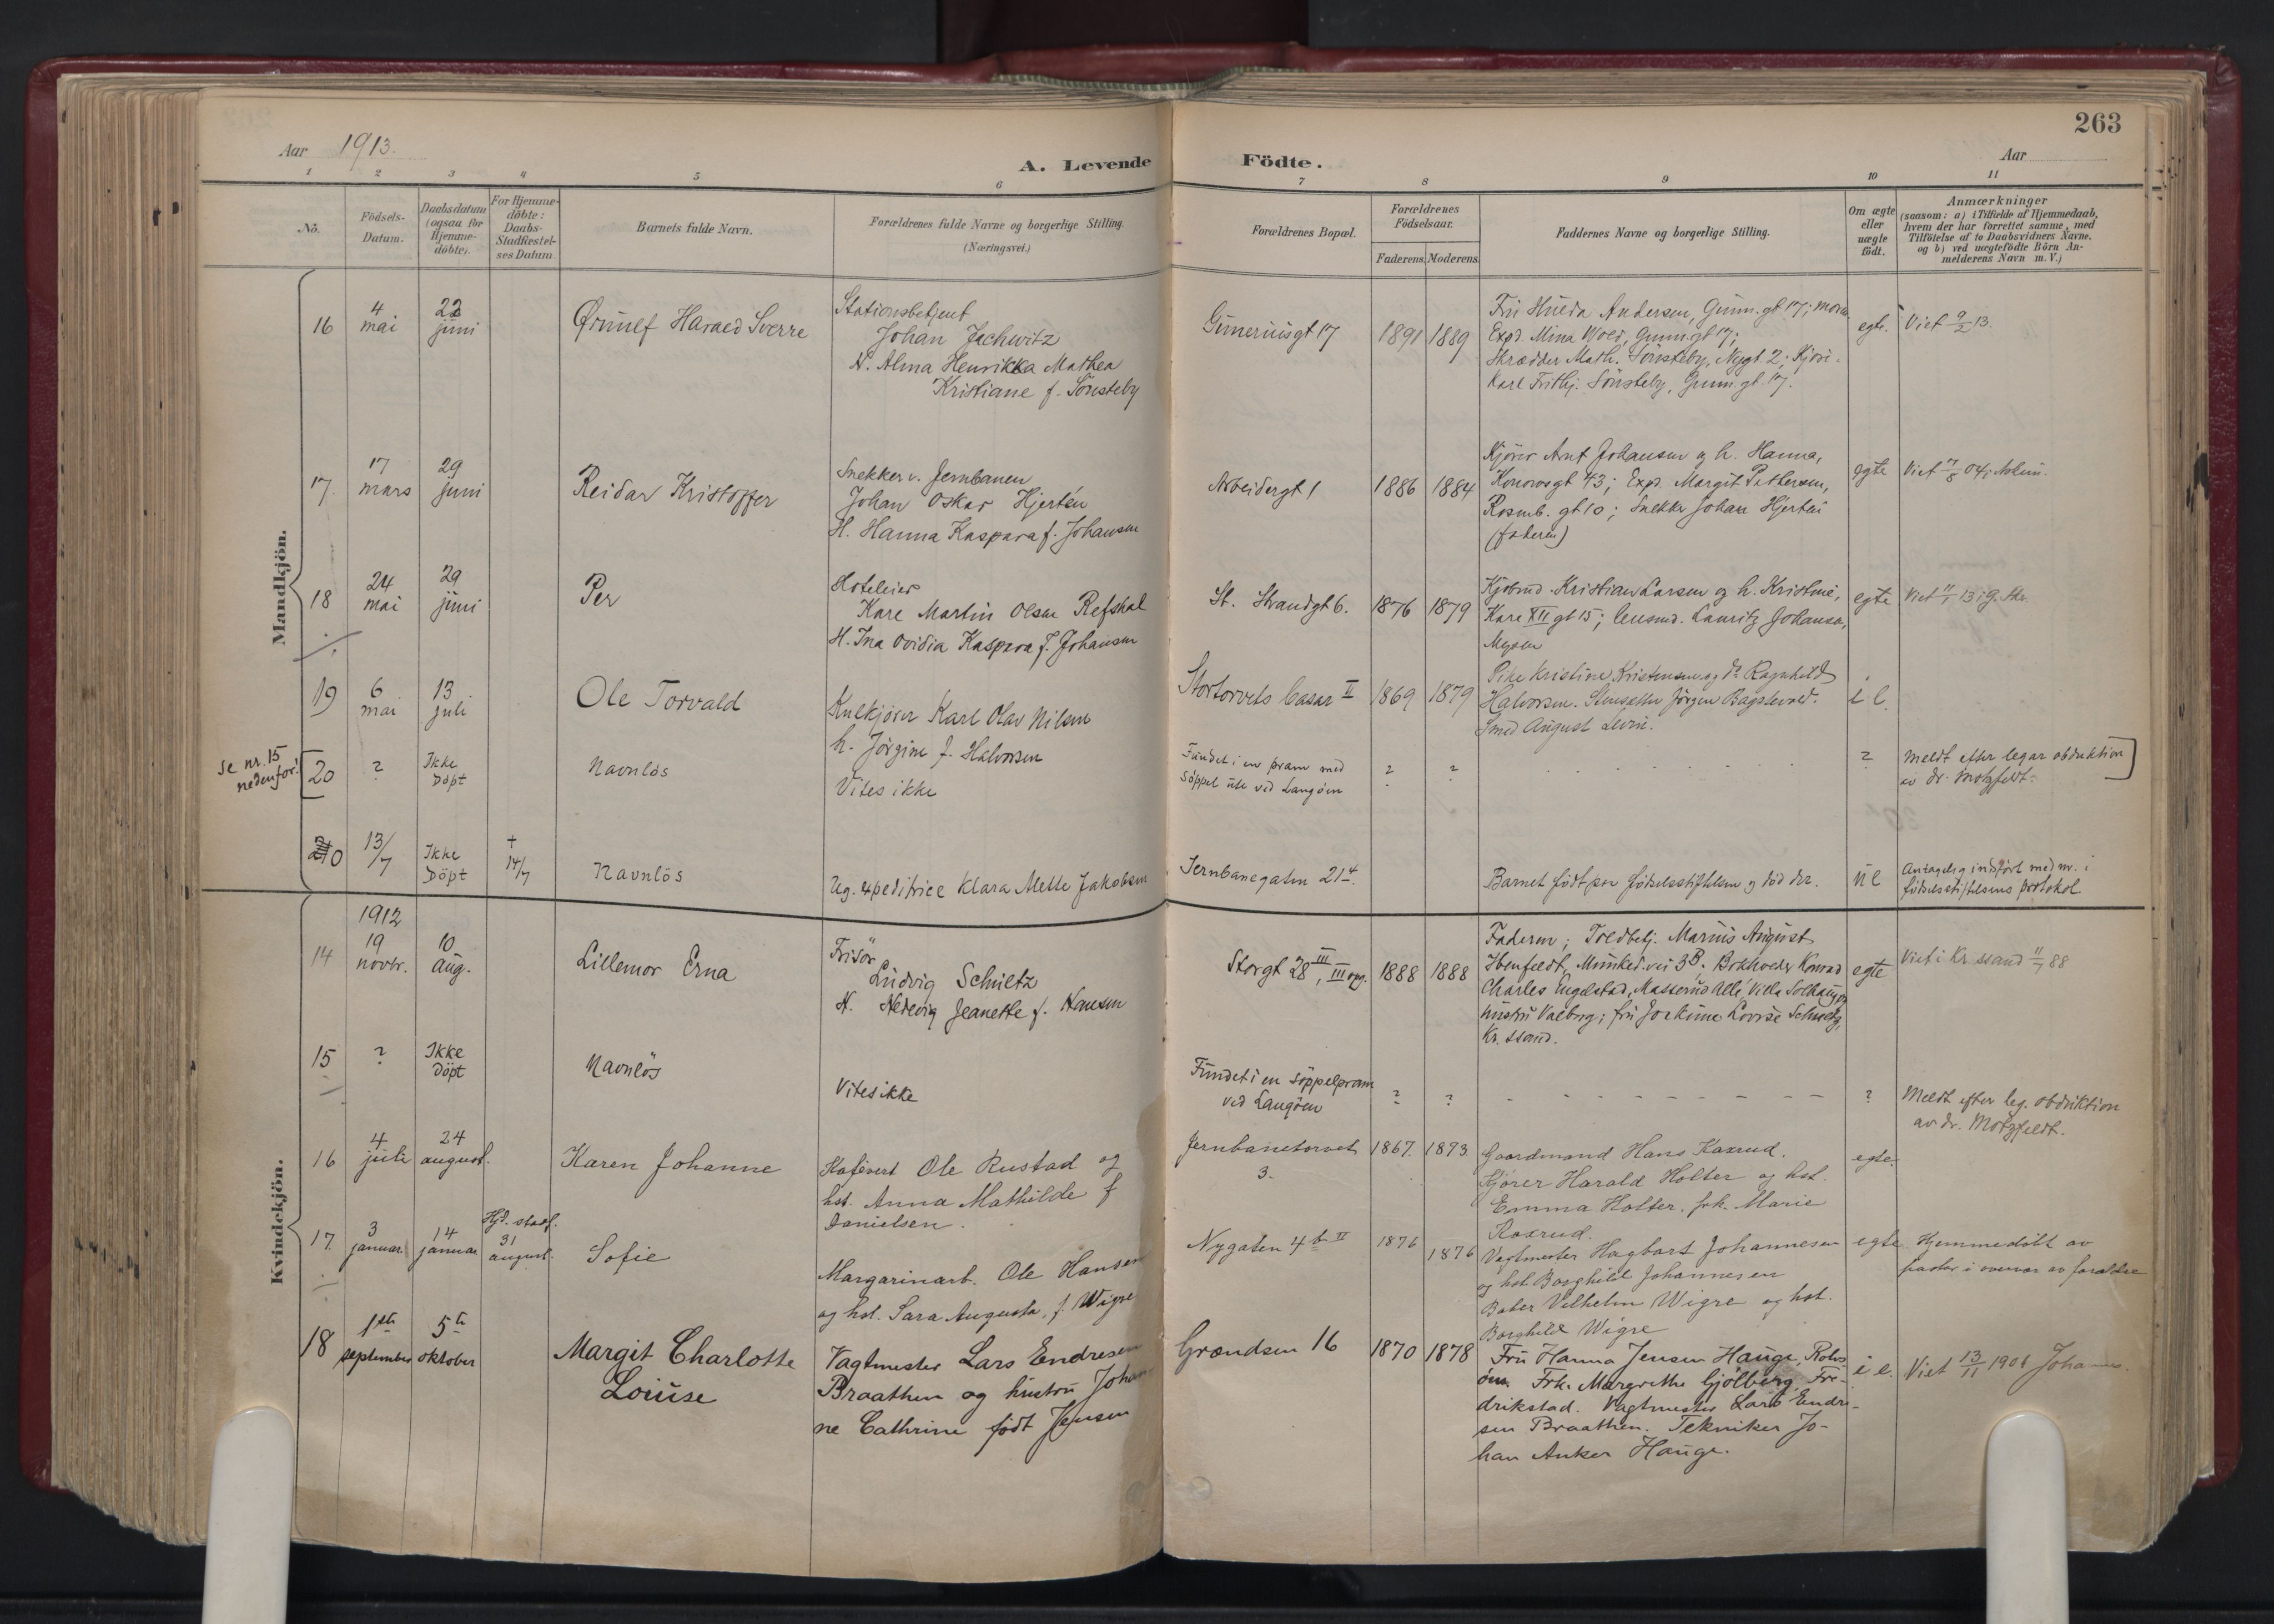 263
Aar 1913.
A. Levende Födte.
Aar
1 2 3 4 5 6 7 8 9 10 11
No.
Födsels-Datum.
Daabsdatum (ogsaa for Hjemme-döbte).
For Hjemme-döbte: Daabs-Stadfæstel-ses Datum.
Barnets fulde Navn.
Forældrenes fulde Navne og borgerlige Stilling.
(Næringsvei.)
Forældrenes Bopæl.
Forældrenes Födselsaar.
Faderens. Moderens.
Faddernes Navne og borgerlige Stilling.
Om ægte eller uægte födt.
Anmærkninger
(saasom: a) i Tilfælde af Hjemmedaab,
hvem der har forrettet samme, med
Tilföielse af to Daabsvidners Navne,
og b) ved uægtefödte Börn An-
melderens Navn m. V.)
Mandkjön.
16
4 mai
22 juni
Ørnulf Harald Sverre
Stationsbetjent
Johan Jachwitz
H. Alma Henrikka Mathea
Kristiane f. Sönsteby
1891 1889
Fru Hulda Andersen, Grum. gt 17; moren
Expd. Mina Wold, Grum.gt 17;
Skrædder Math. Sönsteby, Nygt. 2; Kjöre-
Karl Frithj. Sönsteby, Grum gt. 17.
egte.
Viet 9/2 13.
17.
17 mars
29 juni
Reidar Kristoffer
Snekker v. Jernbanen
Johan Oskar Hjertén
H. Hanna Kaspara f. Johansen
Arbeidergt 1
1886 1884
Kjörer Arnt Johansen og h. Hanna,
43; Exp. Margit Pettersen,
Rosenb. gt 10; Snekker Johan Hjertén
(faderen)
egte
Viet 04;
18
24 mai
29 juni
Per
Hoteleier
Kare Martin Olsen Refshal
H. Ina Ovidia Kaspara f. Johansen
St. Strandgt 6.
1876 1879
Kjöbmd. Kristian Larsen og h. Kristine,
Kare XII gt 15; lensmd. Lauritz Johansen,
Mysen
egte
Viet 13 i
19
6 mai
13 juli
Ole Torvald
Kulkjörer Karl Olav Nilsen
h. Jörgine f. Halvorsen
Stortorvets basar II
1869 1879
Pike Kristine Kristensen og do Ragnhild
Halvorsen. Stensetter Jörgen
Smed August Levin.
i l.
se nr. 15
nedenfor!
20
?
Ikke Döpt
Navnlös
Vites ikke
Fundet i en pram med
Söppel ute ved Langöen
? ?
?
Meldt efter legar obduktion
av dr. Motzfeldt.
20
13/7
Ikke Döpt
+ 14/7
Navnlös
Ug. expeditrice Klara Mette Jakobsen
Jernbanegaten 21 4.
Barnet födt paa födselsstiftelsen og död der.
ue
Antagelig indfört med nr. i
födselsstiftelsens protokol.
Kvindekjön.
14
1912
19 novbr.
10 aug.
Lillemor Erna
Frisör
Ludvig Schultz
H. Hedevig Jeanette f. Hansen
Storgt 28 III, III opg.
1888 1888
Faderen; Toldbetj. Marius August
Ibenfeldt, Munked. vei 3B; Bokholder Konrad
Charles Engelstad, Masserud Allé, Villa Solhaug og
hustru Valborg; fru Jorkime Lovise Schultz,
Kr. ssand.
egte
Viet i Kr. ssand 11/7 88
15
?
Ikke Döpt
Navnlös
Vites ikke
Fundet i en söppelpram
ved Langöen
? ?
?
Meldt efter leg. obduktion
av dr. Motzfeldt.
16
4 juli
24 august.
Karen Johanne
Kafévert Ole Rustad og
hst. Anna Mathilde f
Danielsen.
Jernbanetorvet
3.
1867. 1873.
Gaardmand Hans Kaxrud.
Kjörer Harald Holter og hst.
Emma Holter. frk. Marie
Kaxrud.
egte.
17.
3 januar.
14 januar
Hjd. stadf.
31 august.
Sofie
Margarinarb. Ole Hansen
og hst. Sara Augusta, f. Wigre
Nygaten 4b II
1876 1876
Vagtmester Hagbart Johannesen
og hst. Borghild Johannesen
Baker Vilhelm Wigre og hst.
Borghild Wigre
egte
Hjemmedöbt av
pastor i overvær av forældre
18
1ste september
5te oktober
Margit Charlotte
Louise
Vagtmester Lars Endresen
Braathen og hustru Johan-
ne Cathrine födt Jensen
Grændsen 16
1870 1878
Fru Hanna Jensen Hauge, Rolvs
öen. Frk. Margrethe Gjölberg, Fre-
drikstad. Vagtmester Lars Endre-
sen Braathen. Tekniker Jo-
han Anker Hauge.
i e.
Viet 13/11 1908 Johannes.